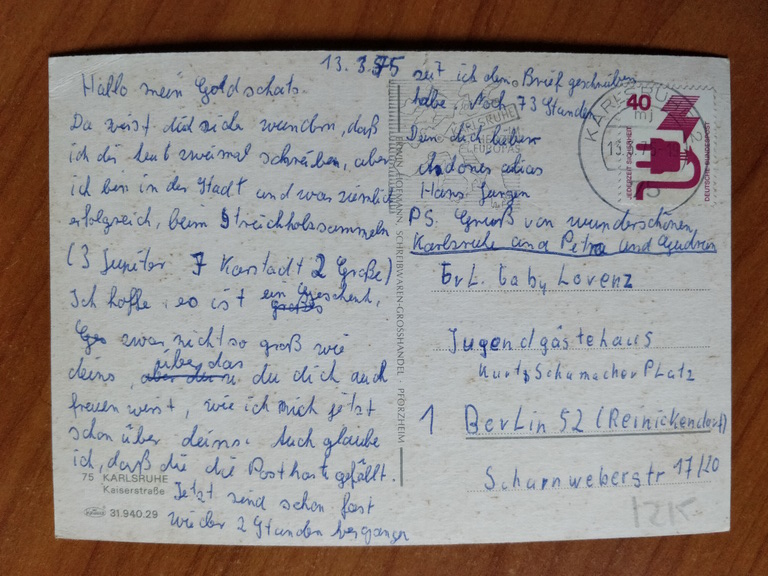 13.3.75
Hallo mein Goldschatz.
Du wirst dich sicher wundern, daß
ich dir heut zweimal schreibe, aber
ich bin in der Stadt und war ziemlich
erfolgreich, beim Streichholzsammeln
(3 Jupiter 7 Karstadt 2 Große)
Ich hoffe, es ist ein Geschenk,
zwar nicht so groß wie
deins, über das du dich auch
freuen wirst, wie ich mich jetzt
schon über deins. Auch glaube
ich, daß dir die Postkarte gefällt.
Jetzt sind schon fast
wieder 2 Stunden vergangen
seit ich den Brief geschrieben
habe. Noch 73 Stunden
Dein dich lieber
alias
Hans Jürgen
PS. Gruß von wunderschönen
Karlsruhe und Petra und Gudrun
Frl. Gaby Lorenz
Jugendgästehaus
Kurt Schumacher Platz
1 Berlin 52 (Reinickendorf)
Scharnweberstr 17/20
75 KARLSRUHE
Kaiserstraße
31.940.29
ERWIN HOFMANN, SCHREIBWAREN-GROSSHANDEL, PFORZHEIM
KARLSRUHE
40
JEDERZEIT SICHERHEIT
DEUTSCHE BUNDESPOST
1215